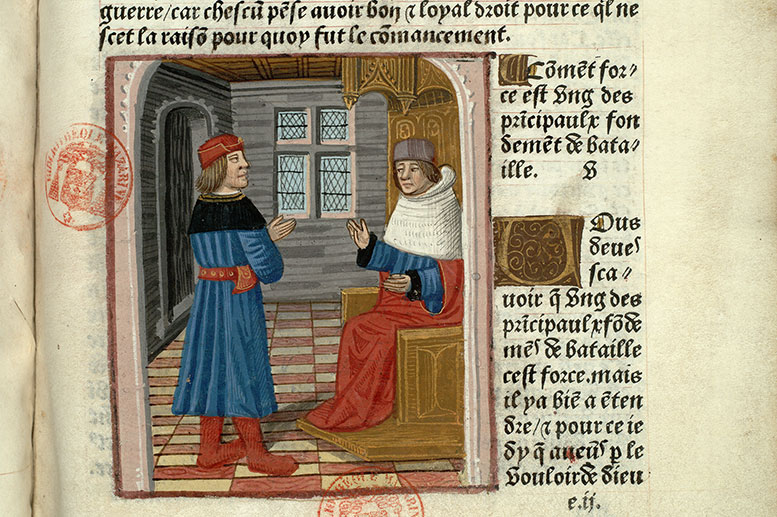 guerre/car chescũ pẽse auoir boñ ⁊ loyal droit pour ce ql̃ ne
scet la raisoñ pour quoy fut le cõmancement.
Cõmẽt for⸗
ce est vng des
prĩcipaulx fon
dement de bata⸗
ille. V
Vous
deues
sca⸗
uoir q̃ vng des
prĩcipaulx fõde
mes de bataille
cest force. mais
il ya biẽ a ẽten
dre/⁊ pour ce ie
dy q̃ aucũs p le
vouloir de dieu
e.ii.